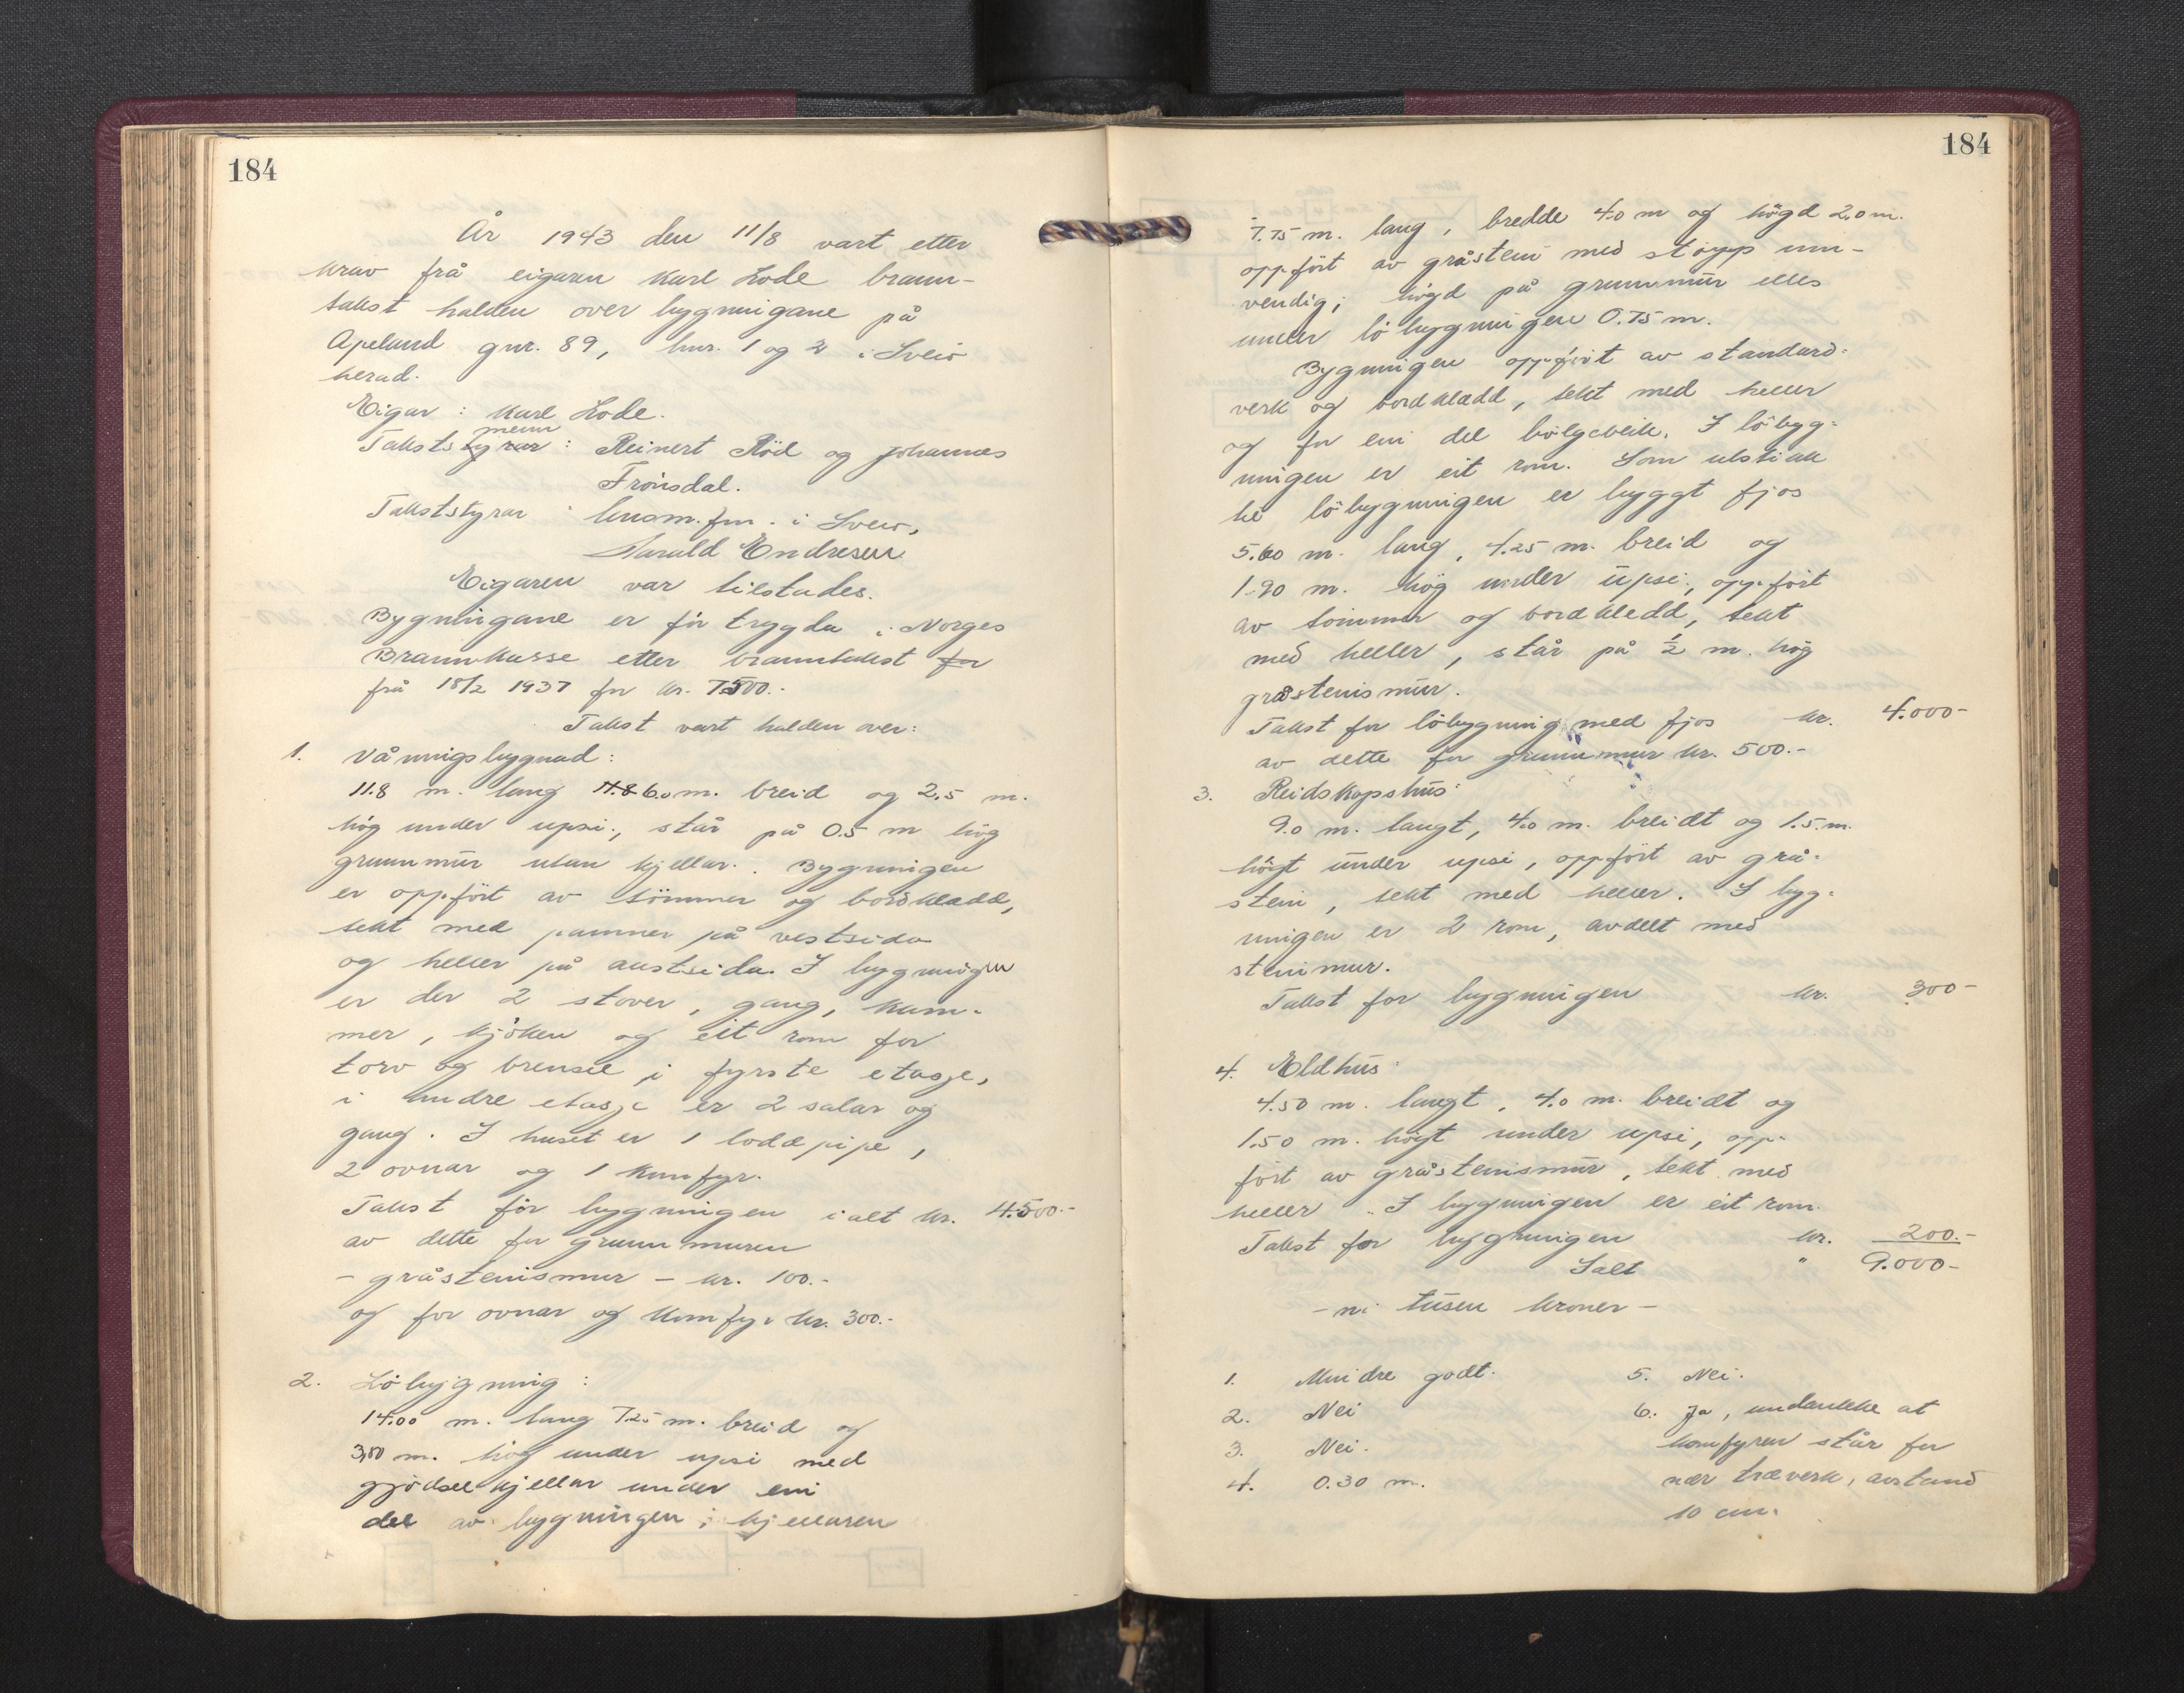 184
År 1943 den 11/8 vart etter
krav frå eigaren Karl Lode brann-
takst halden over bygningane på
Apeland gnr. 89, bnr. 1 og 2 i Sveio
herad.
Eigar : Karl Lode.
menn
Takststyrar : Reinert Röd og Johannes
Frönsdal.
Takststyrar : lensm.fm. i Sveio,
Harald Endresen
Eigaren var tilstades.
Bygningane er för trygda i Norges
Brannkasse etter branntakst for
frå 18/2 1937 for kr. 7500.-
Takst vart halden over:
1. Våningsbygnad :
11.8 m. lang 11.8 6.0 m. breid og 2,5 m.
hög under upsi., står på 0.5 m hög
grunnmur utan kjellar. Bygningen
er oppfört av tömmer og bordkledd,
tekt med panner på vestsida
og heller på austsida. I bygningen
er der 2 stover, gang, kam-
mer, kjöken og eit rom for
torv og brensel i fyrste etasje,
i andre etasje er 2 salar og
gang. I huset er 1 lodd pipe,
2 ovnar og 1 komfyr.
Takst för bygningen ialt kr. 4.500.-
av dette for grunnmuren
- gråsteinsmur - kr. 100.-
og for ovnar og komfyr kr. 300.-
2. Löbygning :
14.00 m. lang 7.25 m. breid og
3,00 m. hög under upsi med
gjödselkjellar under ein
del av bygningen; kjellaren
184
7.75 m. lang, bredde 4.0 m og högd 2,0 m.
oppfört av gråstein med støpp inn-
vendig; högd på grunnmur elles
under löbygningen 0.75 m.
Bygningen oppfört av standard-
verk og bordkledd, tekt med heller
og for ein del bölgeblik. I löbyg-
ningen er eit rom. Som utstikk
til löbygningen er byggt fjos
5.60 m. lang, 4.25 m. breid og
1.90 m. hög under upsi., oppfört
av tömmer og bordkledd, tekt
med heller, står på 1/2 m. hög
gråsteinsmur.
Takst for löbygning med fjos kr. 4.000-
av dette for grunnmur kr. 500.-
3. Reidskapshus:
9.0 m. langt, 4.0 m. breidt og 1.5 m.
högt under upsi, oppfört av grå-
stein, tekt med heller. I byg-
ningen er 2 rom, avdelt med
steinmur.
Takst for bygningen kr. 300-
4. Eldhus:
4.50 m. langt, 4.0 m. breidt og
1.50 m. högt under upsi, opp-
fört av gråsteinsmur, tekt med
heller. I bygningen er eit rom.
Takst for bygningen kr. 200.-
Ialt " 9.000-
- ni tusen kroner -
1. Mindre godt.
2. Nei
3. Nei.
4. 0.30 m.
5. Nei.
6. Ja, undantike at
komfyren står for
nær treverk, avstand
10 cm.